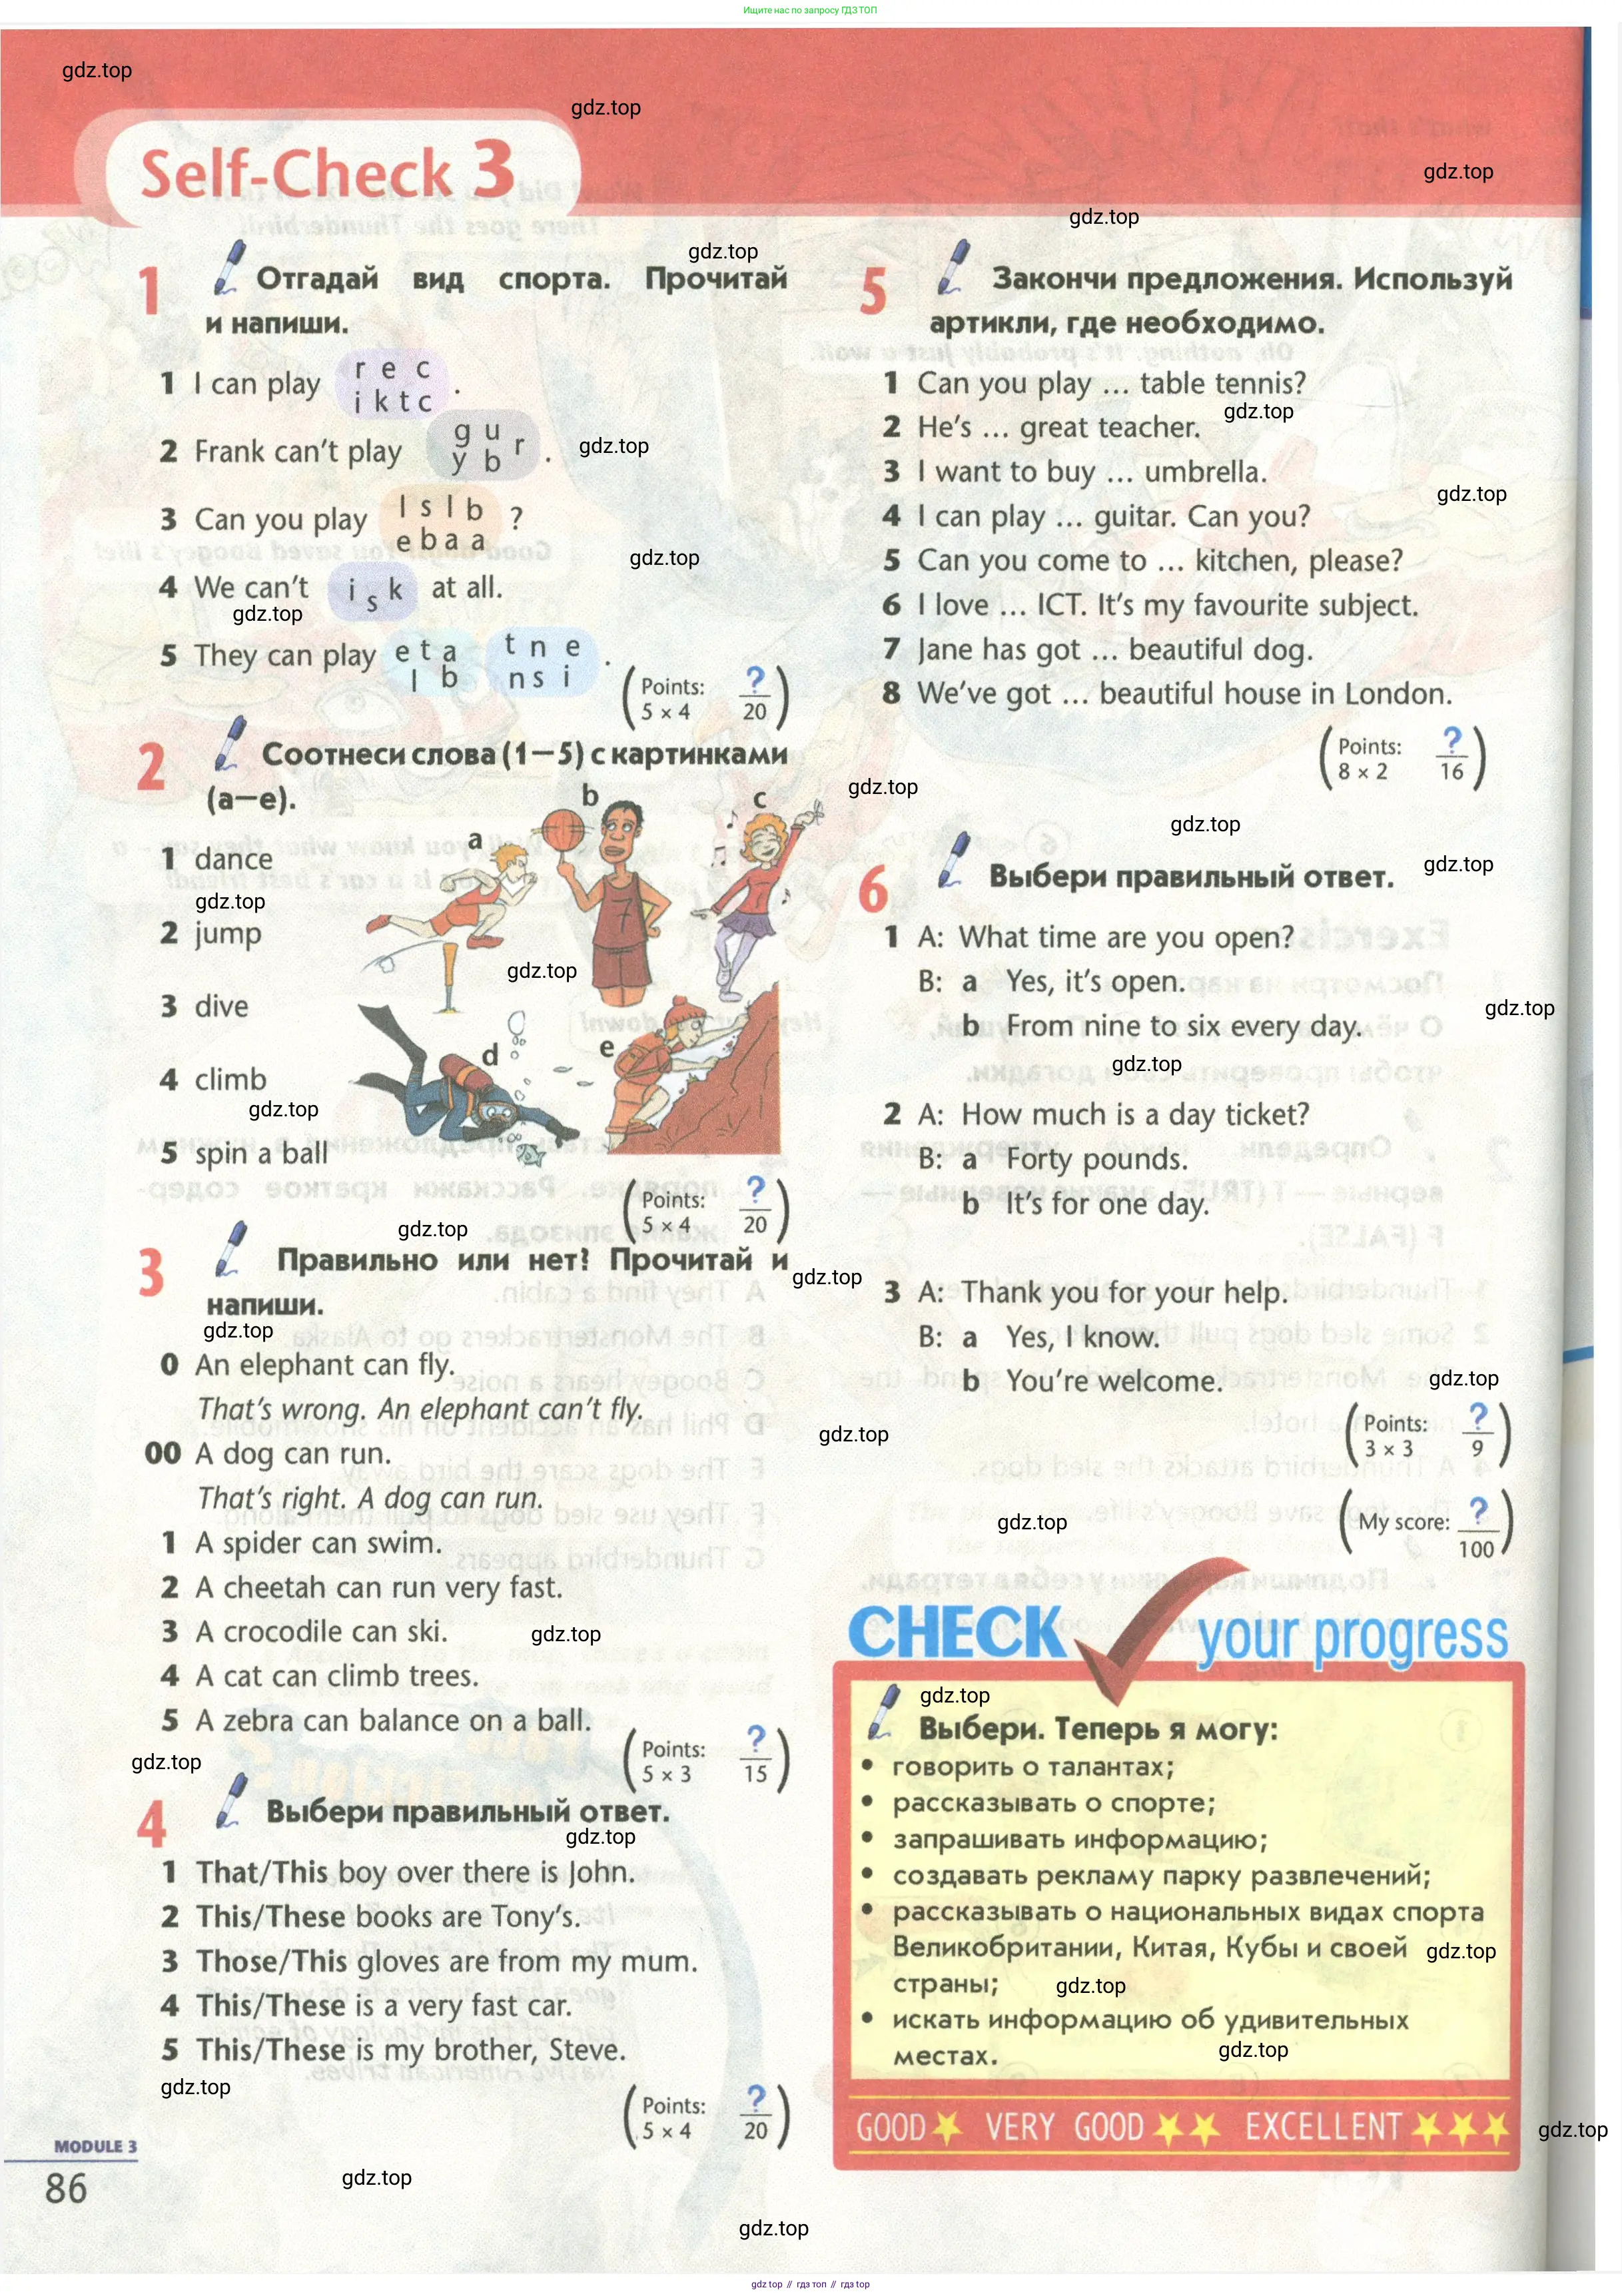 Ищите нас по запросу ГДЗ ТОП
gdz.top
gdz.top
gdz.top
gdz.top
gdz.top
Self-Check 3
1 Отгадай вид спорта. Прочитай
и напиши.
1 I can play r e c
i k t c .
2 Frank can't play g u r
y b .
gdz.top
3 Can you play l s l b
e b a a ?
gdz.top
4 We can't i s k at all.
gdz.top
5 They can play e t a
l b
t n e
n s i .
(Points: ?
5 x 4 20)
2 Соотнеси слова (1–5) с картинками
(a–e).
a
b
c
d
e
1 dance
gdz.top
2 jump
gdz.top
3 dive
4 climb
gdz.top
5 spin a ball
(Points: ?
5 x 4 20)
gdz.top
3 Правильно или нет? Прочитай и
напиши.
gdz.top
gdz.top
0 An elephant can fly.
That's wrong. An elephant can't fly.
00 A dog can run.
That's right. A dog can run.
gdz.top
1 A spider can swim.
2 A cheetah can run very fast.
3 A crocodile can ski.
gdz.top
4 A cat can climb trees.
5 A zebra can balance on a ball.
(Points: ?
5 x 3 15)
gdz.top
4 Выбери правильный ответ.
gdz.top
1 That/This boy over there is John.
2 This/These books are Tony's.
3 Those/This gloves are from my mum.
4 This/These is a very fast car.
5 This/These is my brother, Steve.
gdz.top
(Points: ?
5 x 4 20)
MODULE 3
86
gdz.top
gdz.top
5 Закончи предложения. Используй
артикли, где необходимо.
1 Can you play ... table tennis?
gdz.top
2 He's ... great teacher.
3 I want to buy ... umbrella.
gdz.top
4 I can play ... guitar. Can you?
5 Can you come to ... kitchen, please?
6 I love ... ICT. It's my favourite subject.
7 Jane has got ... beautiful dog.
8 We've got ... beautiful house in London.
(Points: ?
8 x 2 16)
gdz.top
gdz.top
gdz.top
6 Выбери правильный ответ.
1 A: What time are you open?
B: a Yes, it's open.
b From nine to six every day.
gdz.top
gdz.top
2 A: How much is a day ticket?
B: a Forty pounds.
b It's for one day.
3 A: Thank you for your help.
B: a Yes, I know.
b You're welcome.
gdz.top
(Points: ?
3 x 3 9)
gdz.top
(My score: ?
100)
CHECK your progress
gdz.top
Выбери. Теперь я могу:
• говорить о талантах;
• рассказывать о спорте;
• запрашивать информацию;
• создавать рекламу парку развлечений;
• рассказывать о национальных видах спорта
Великобритании, Китая, Кубы и своей
gdz.top
страны;
gdz.top
• искать информацию об удивительных
местах.
gdz.top
GOOD VERY GOOD EXCELLENT
gdz.top
gdz top // гдз топ // gdz top